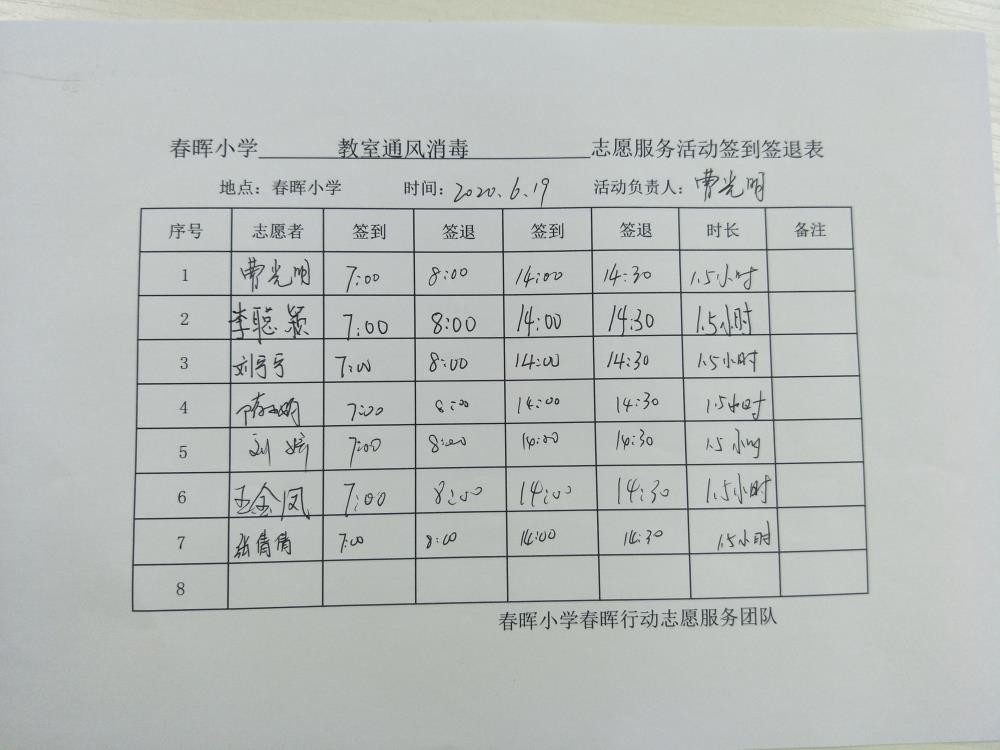 春晖小学 教室通风消毒 志愿服务活动签到签退表
地点：春晖小学 时间：2020.6.19 活动负责人：曹光明
序号 志愿者 签到 签退 签到 签退 时长 备注
1 曹光明 7:00 8:00 14:00 14:30 1.5小时
2 李聪颖 7:00 8:00 14:00 14:30 1.5小时
3 刘亨亨 7:00 8:00 14:00 14:30 1.5小时
4 7:00 8:00 14:00 14:30 1.5小时
5 刘 7:00 8:00 14:00 14:30 1.5小时
6 王金凤 7:00 8:00 14:00 14:30 1.5小时
7 张倩倩 7:00 8:00 14:00 14:30 1.5小时
8
春晖小学春晖行动志愿服务团队